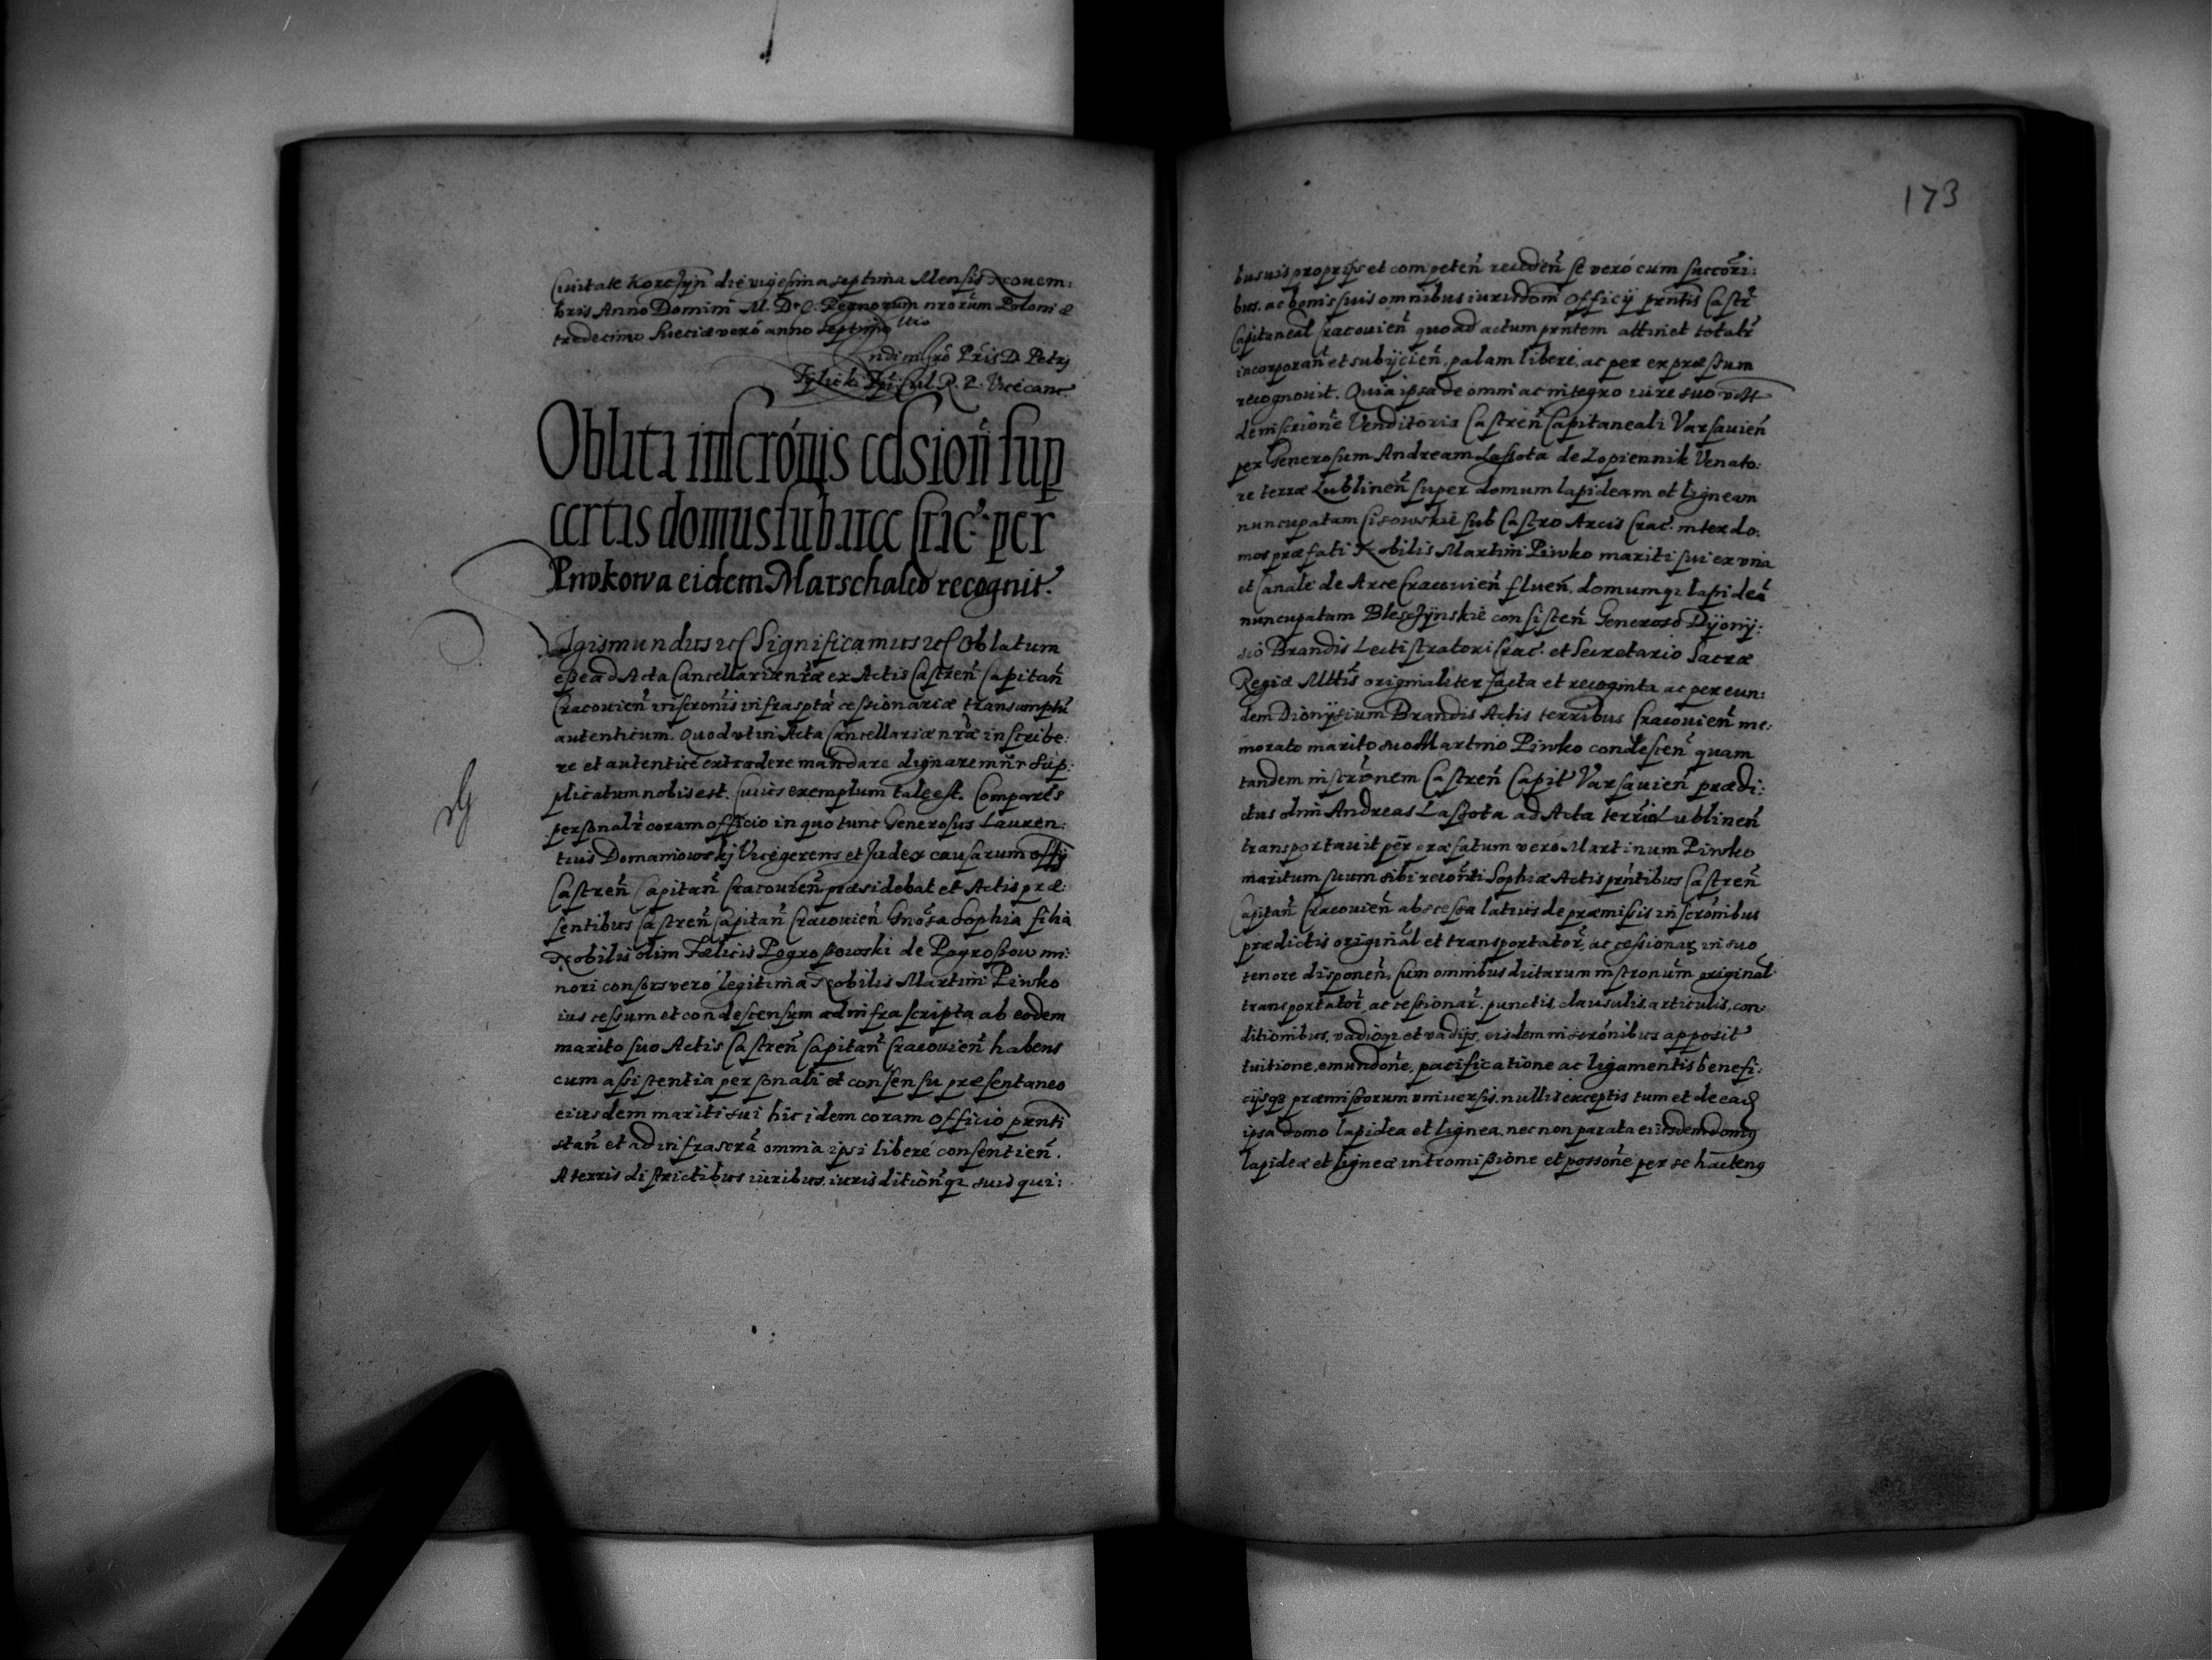 Ciuitate Korczÿn die vigesima septima Mensis Nouem:
bris Anno Domini M. D. C. Regnorum nrorum Poloniæ
tredecimo Sueciæ vero anno septimo
Petrj
Tylicki R. P. Vicecanc.
Oblata inscrónis cessioñ sup
certis domus sub arce Crac. per
Piwkowa eidem Marschalco recognit.
Sigismundus Significamus Oblatum
eße ad Acta Cancellariæ nræ ex Actis Castreñ Capitañ
Cracouieñ inscronis infrasptæ ceßionariæ transumptu
autenticum. Quod vt in Acta Cancellariæ nræ inscribe:
re et autentice extradere mandare dignaremur sup:
plicatum nobis est. Cuius exemplum tale est. Comparẽs
personalr coram officio in quo tunc Generosus Lauren:
tius Domaniowskj Vicegerens et Judex causarum offÿ
Castreñ Capitañ Cracouieñ præsidebat et Actis præ:
sentibus Castreñ Capitañ Cracouieñ Gnosa Sophia filia
Nobilis olim Fælicis Pogroßowski de Pogroßow mi:
nori consors vero legitima Nobilis Martini Piwko
ius ceßum et condescensum ad infra scripta ab eodem
marito suo Actis Castreñ Capitañ Cracouieñ habens
cum aßistentia personali et consensu præsentaneo
eiusdem mariti sui hic idem coram Officio prnti
stañ et ad infrascra omnia ipsi libere consentieñ.
A terris districtibus iuribus iurisditionqȝ suis qui:
173
busuis proprÿs et competeñ recedeñ se vero cum succori:
bus. ac bonis suis omnibus iurisdom Officÿ prntis Castr
Capitaneal Cracouieñ quo ad actum prntem attinet totalr
incorporañ et subÿcieñ. palam libere. ac per expræßum
recognouit. Quia ipsa de omni ac integro iure suo
de inscrione Venditoria Castreñ Capitaneali Varsauieñ
per Generosum Andream Laßota de Lopiennik Venato:
re terræ Lublineñ super domum lapideam et ligneam
nuncupatam Cisowskie sub Castro Arcis Crac. inter do:
mos præfati Nobilis Martini Piwko mariti sui ex vna
et Canale de Arce Cracouieñ flueñ. domumqȝ lapidea
nuncupatam Blesczÿnskie consisteñ Generoso Dÿonÿ:
sio Brandis Lectistratori Crac. et Secretario Sacræ
Regiæ Mttis originaliter facta et recoginta ac per eun:
dem Dionÿsium Brandis Actis terribus Cracouieñ me:
morato marito suo Martino Piwko condesceñ quam
tandem inscronem Castreñ Capit Varsauieñ prædi:
ctus olim Andreas Laßota ad Acta terria Lublineñ
transportauit per præfatum vero Martinum Piwko
maritum suum sibi reconti Sophiæ Actis prntibus Castreñ
Capitañ Cracouieñ abscessa latius de præmißis inscronibus
prædictis original et transportator ac ceßionar in suo
tenore disponeñ. Cum omnibus dictarum inscronum original
transportator ac ceßionar. punctis clausulis articulis, con:
ditionibus, vadioqȝ et vadÿs eisdem inscronibus apposit
tuitione, emundone, pacificatione ac ligamentis benefi:
cÿsqȝ præmißorum vniuersis. nullis exceptis tum et de eadȝ
ipsa domo lapidea et lignea. nec non parata eiusdem domȝ
lapideæ et ligneæ intromißione et possone per se hactenȝ